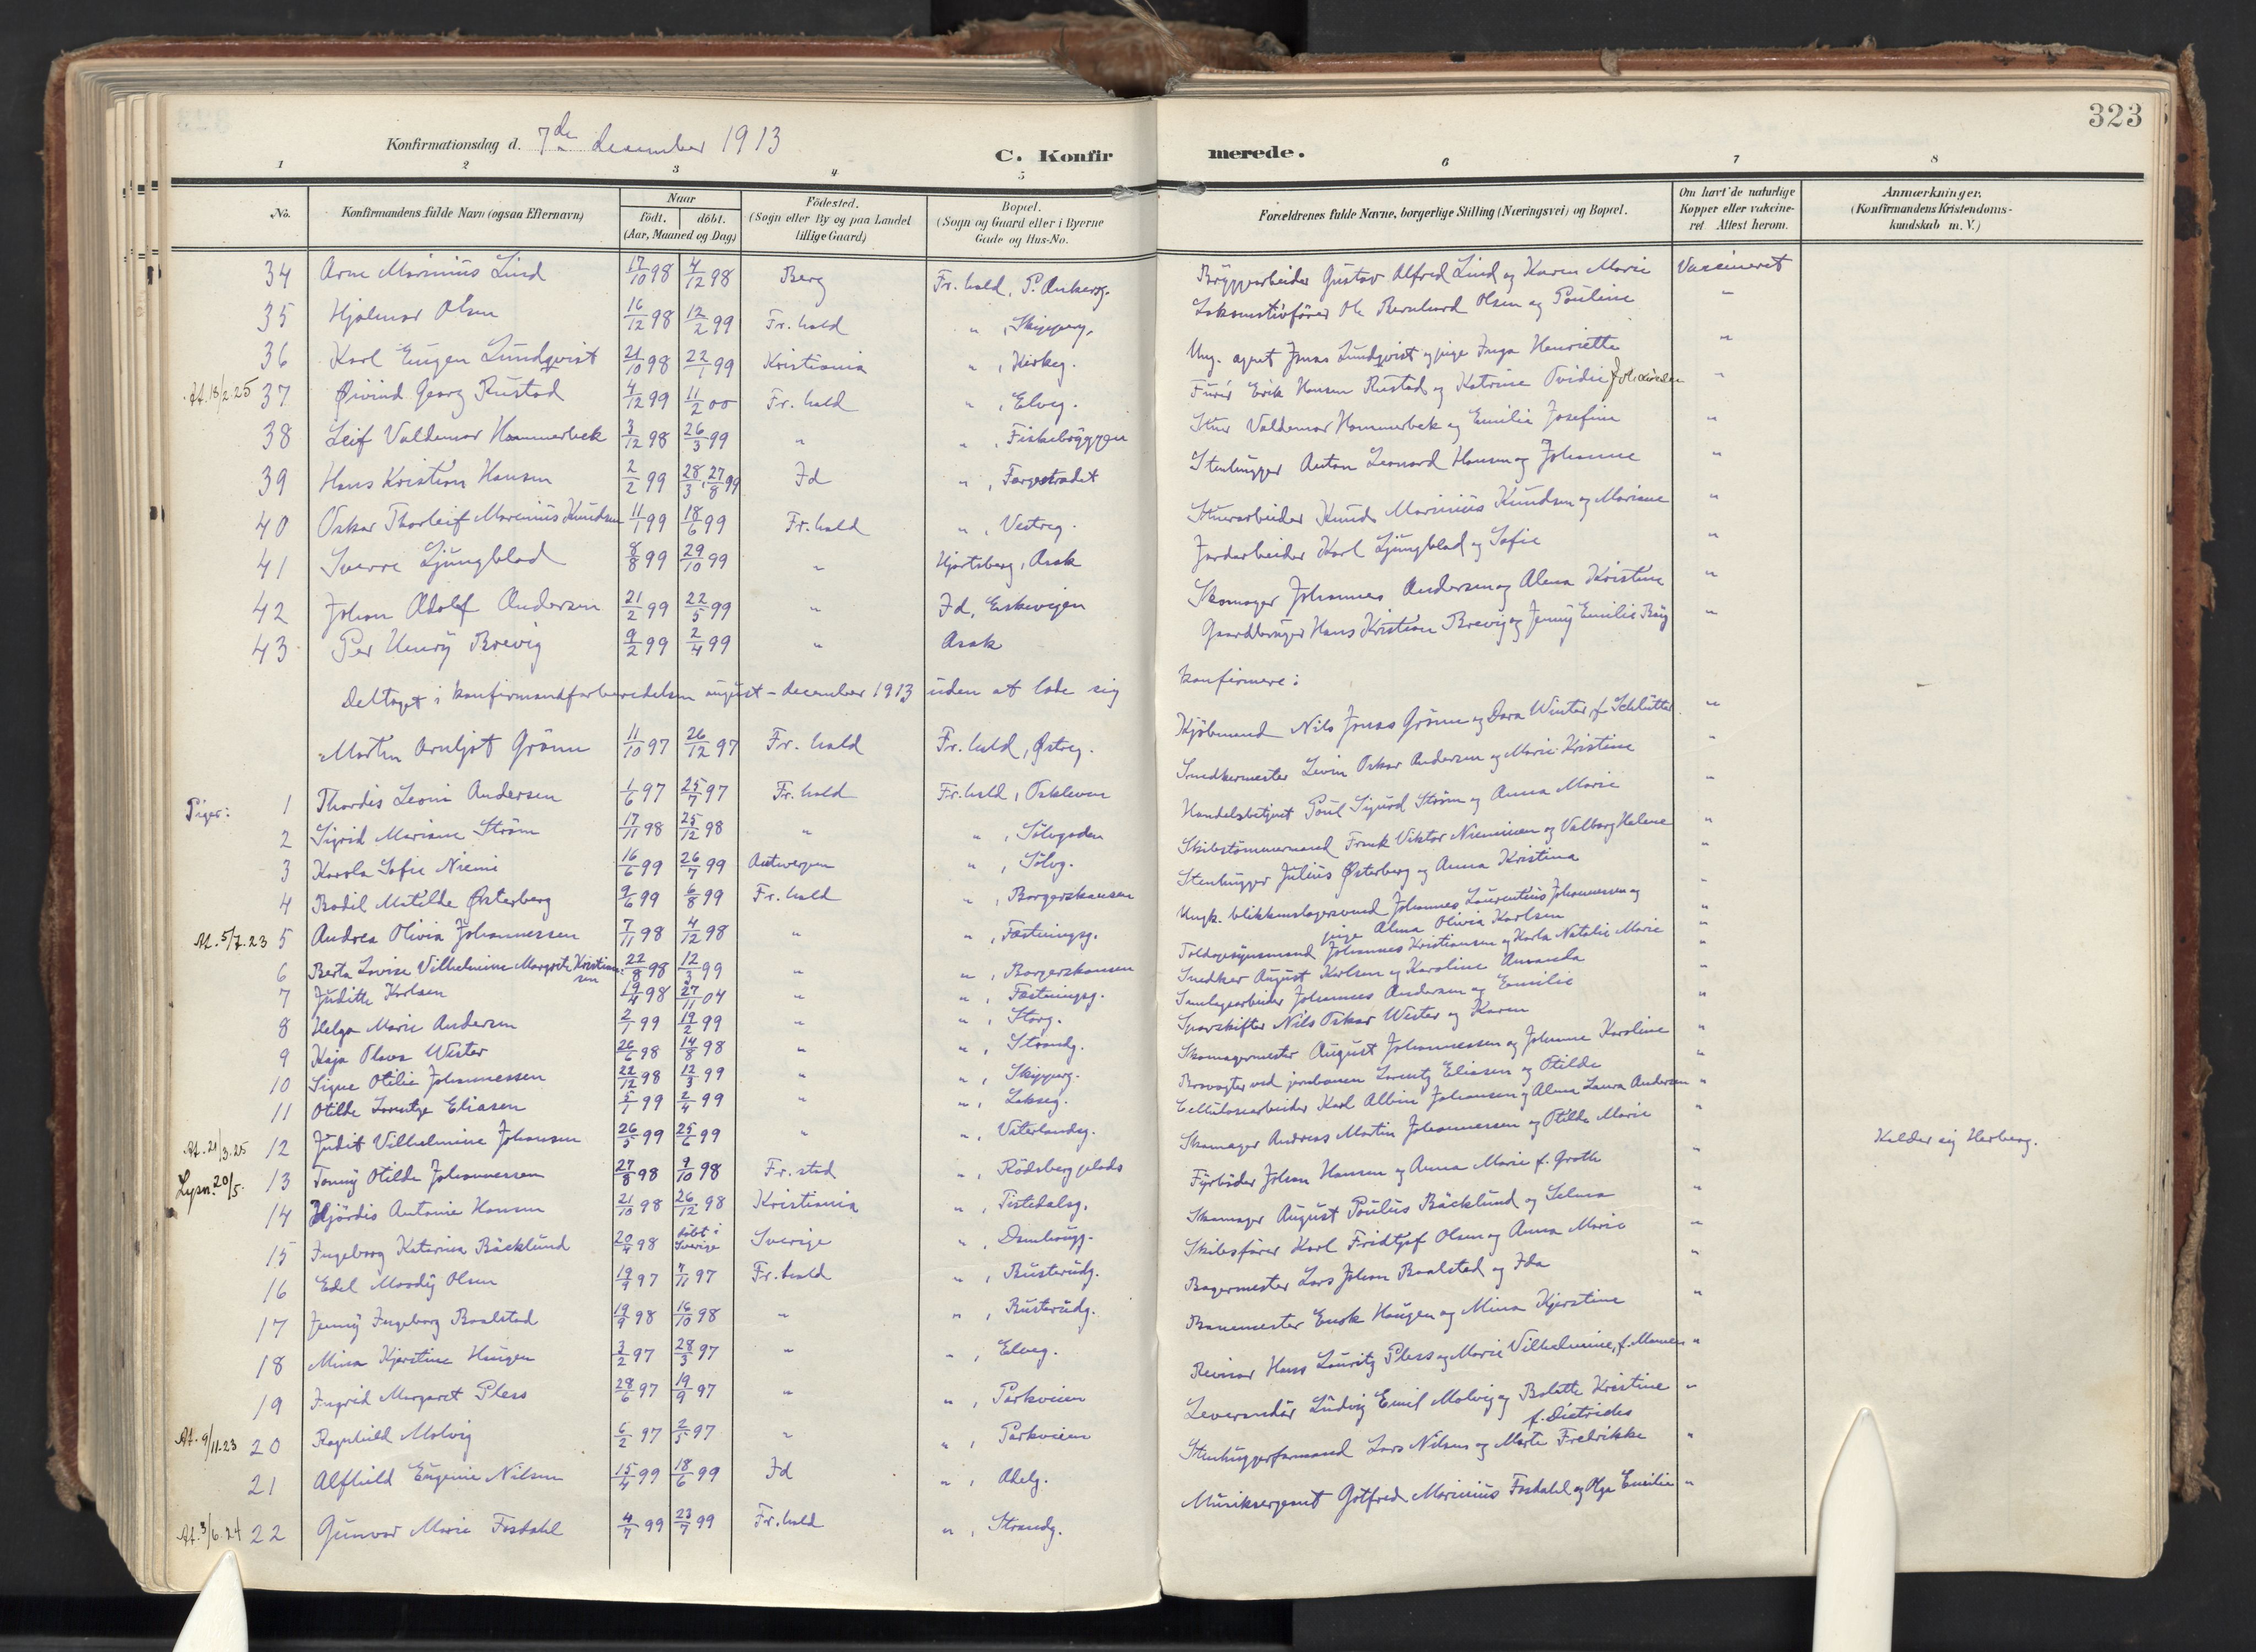 323
Konfirmationsdag d. 7de december 1913
C. Konfirmerede.
1 2 3 4 5 6 7 8
No. | Konfirmandens fulde Navn (ogsaa Efternavn) | Naar födt. | döbt. (Aar, Maaned og Dag) | Födested. (Sogn eller By og paa Landet tillige Gaard) | Bopæl. (Sogn og Gaard eller i Byerne Gade og Hus-No. | Forældrenes fulde Navne, borgerlige Stilling (Næringsvei) og Bopæl. | Om havt de naturlige Kopper eller vakcineret Attest herom. | Anmærkninger. (Konfirmandens Kristendomskundskab m. V.)
34 Arne Marinius Lind 17/10 98 4/12 98 Berg Fr.hald, P. Ankersg. Bryggearbeider Gustav Alfred Lind og Karen Marie Vaccineret
35 Hjalmar Olsen 16/12 98 12/2 99 Fr.hald " , Skipperg. Lokomotivfører Ole Bernhard Olsen og Pauline "
36 Karl Eugen Lundqvist 21/10 98 22/1 99 Kristiania " , Kirkeg. Ung. agent Jonas Lundqvist og pige Inga Henriette "
At. 18/2.25 37 Øivind Georg Rustad 4/12 99 11/2 00 Fr.hald " , Elveg. Furér Erik Hansen Rustad og Katrine Ovidie "
38 Leif Valdemar Hammerbek 3/12 98 26/3 99 " " , Fiskebryggen Stuer Valdemar Hammerbek og Emilie Josefine "
39 Hans Kristian Hansen 2/2 99 28/3, 27/8 99 Id " , Fargestrædet Stenhugger Anton Leonard Hansen og Johanne "
40 Oskar Thorleif Marenius Knudsen 11/1 99 18/6 99 Fr.hald " , Vestreg. Stuerarbeider Knud Marinius Knudsen og Mariane "
41 Sverre Ljungblad 8/8 99 29/10 99 " Hjortsberg, Asak Jordarbeider Karl Ljungblad og Sofie "
42 Johan Adolf Andersen 21/2 99 22/5 99 " Id, Eskevigen Skomager Johannes Andersen og Alma Kristine "
43 Per Henry Brevig 9/2 99 2/4 99 " Asak Gaardbruger Hans Kristian Brevig og Jenny Emilie Bøy "
Deltaget i konfirmandforberedelsen august - december 1913 uden at lade sig konfirmere:
Morten Arnljot Grönn 11/10 97 26/12 97 Fr.hald Fr.hald, Østreg. Kjöbmand Nils Jonas Grönn og Dora Winter, f. Schlütter "
Piger:
1 Thordis Leoni Andersen 1/6 97 25/7 97 Fr.hald Fr.hald, Oskleven Snedkermester Levin Oskar Andersen og Marie Kristine "
2 Sigrid Mariane Ström 17/11 98 25/12 98 " " , Sölvgaden Handelsbetjent Poul Sigurd Ström og Anna Marie "
3 Karola Sofie Niemi 16/6 99 26/7 99 Antwerpen " , Sölvg. Skibstömmermand Frank Viktor Nieminen og Valborg Helene "
4 Bodil Matilde Østerberg 9/6 99 6/8 99 Fr.hald " , Borgerskansen Stenhugger Julius Østerberg og Anna Kristina "
At. 5/7.23 5 Andrea Olivia Johannessen 7/11 98 4/12 98 " " , Fæstningsg. Ungk. blikkenslagersvend Johannes Laurentius Johannessen og pige Alma Olivia Karlsen "
6 Berta Lovise Vilhelmine Margrete Kristiansen 22/8 98 12/3 99 " " , Borgerskansen Toldopsynsmand Johannes Kristiansen og Karla Natalie Marie "
7 Judith Karlsen 19/4 98 27/11 04 " " , Fæstningsg. Snedker August Karlsen og Karoline Amanda "
8 Helga Marie Andersen 2/1 99 19/2 99 " " , Storg. Samlagsarbeider Johannes Andersen og Emilie "
9 Kaja Olava Wister 26/6 98 14/8 98 " " , Strandg. Sporskifter Nils Oskar Wister og Karen "
10 Signe Otilie Johannessen 22/12 98 12/3 99 " " , Skipperg. Skomagermester August Johannessen og Johanne Karoline "
11 Otilde Lorentze Eliasen 5/1 99 2/4 99 " " , Lakseg. Brovogter ved jernbanen Lorentz Eliasen og Otilde "
At. 21/3.25 12 Judit Vilhelmine Johansen 26/3 99 25/6 99 " " , Vaterlandsg. Cellulosearbeider Karl Albin Johansen og Alma Laura Andersen "
Lysn. 20/5 13 Tonny Otilde Johannessen 27/8 98 9/10 98 Fr.stad " , Rödsberg plads Skomager Andreas Martin Johannessen og Otilde Marie " Kalder sig Herberg.
14 Hjördis Antonie Hansen 21/10 98 26/12 98 Kristiania " , Tistedalsg. Fyrböder Johan Hansen og Anna Marie f. Groth "
15 Ingeborg Katarina Bäcklund 20/4 98 döbt i Sverige Sverige " , Damhaugg. Skomager August Paulus Bäcklund og Selma "
16 Edel Moody Olsen 19/9 97 7/11 97 Fr.hald " , Busterudg. Skibsförer Karl Fridtjof Olsen og Anna Marie "
17 Jenny Ingeborg Baalstad 19/9 98 16/10 98 " " , Busterudg. Bagermester Lars Johan Baalstad og Ida "
18 Mina Kjerstine Haugen 3/2 97 28/3 97 " " , Elveg. Banemester Enok Haugen og Mina Kjerstine "
19 Ingrid Margaret Pless 28/6 97 19/9 97 " " , Parkveien Revisor Hans Lauritz Pless og Marie Vilhelmine, f. Mamen "
At. 9/11.23 20 Ragnhild Molvig 6/2 97 2/5 97 " " , Parkveien Leverandör Ludvig Emil Molvig og Bolette Kristine f. Dietrichs "
21 Alfhild Eugenie Nilsen 15/4 99 18/6 99 Id " , Adelg. Stenhuggerformand Lars Nilsen og Marte Fredrikke "
At. 3/6.24 22 Gunvor Marie Fosdahl 4/7 99 23/7 99 Fr.hald " , Strandg. Musiksergeant Gotfred Marinius Fosdahl og Olga Emilie "